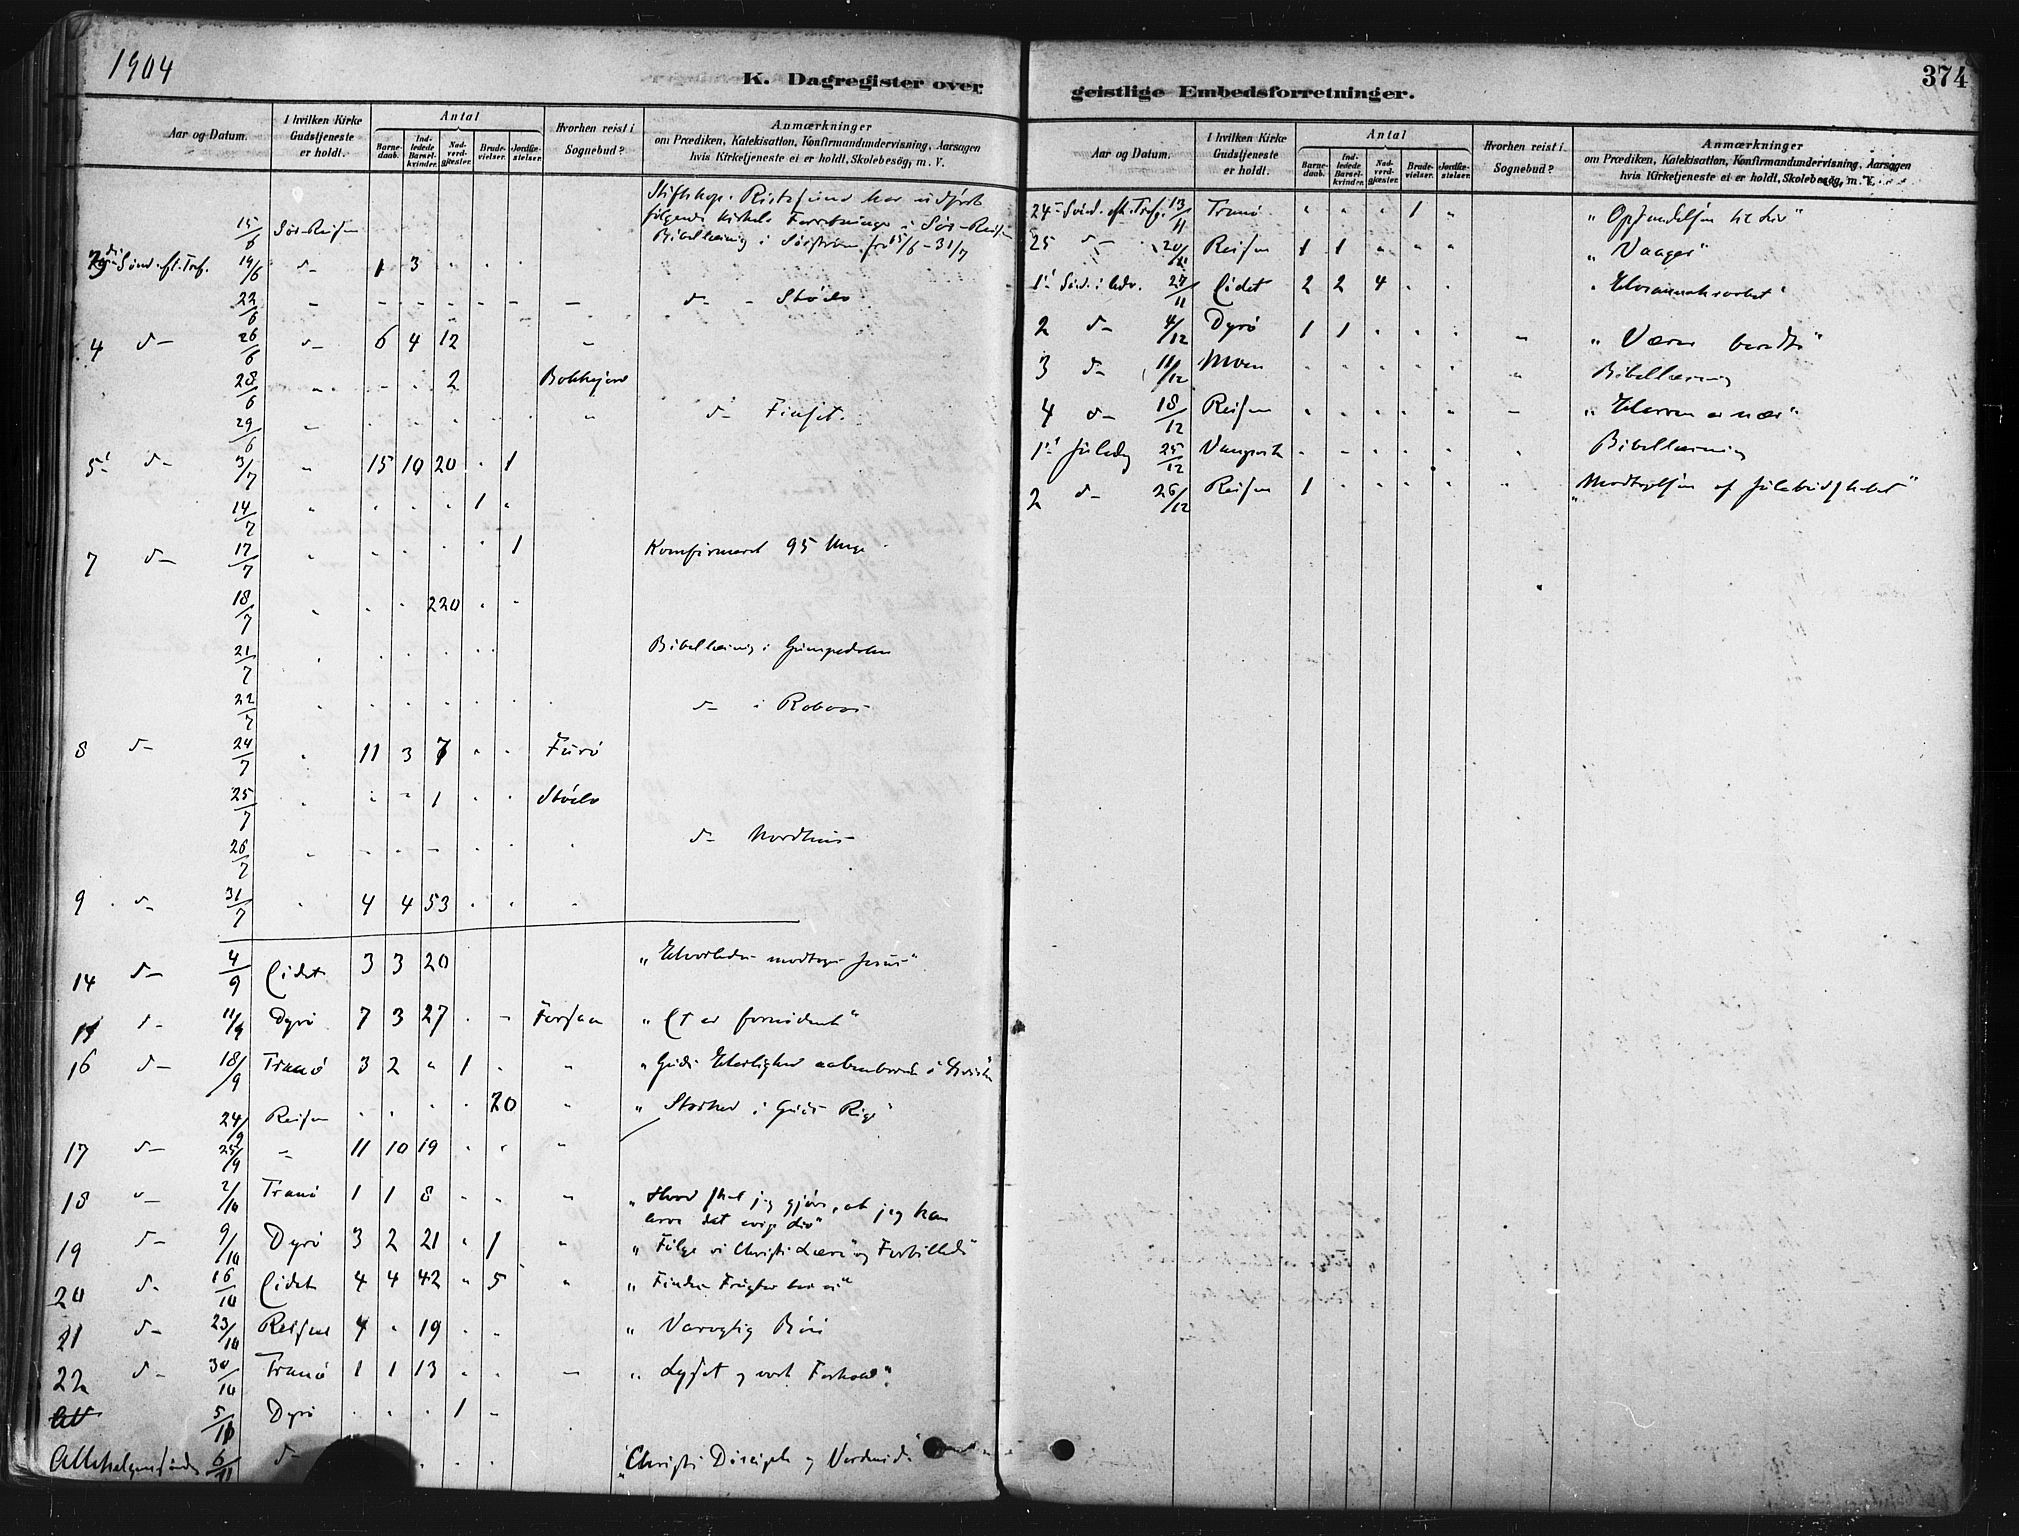 1904
K. Dagregister over
geistlige Embedsforretninger.
374
Aar og Datum.
I hvilken Kirke Gudstjeneste er holdt.
Antal
Barne-daab.
Ind-ledede Barsel-kvinder.
Nad-verd-gjæster.
Brude-vielser.
Jordfæ-stelser.
Hvorhen reist i Sognebud?
Anmærkninger
om Prædiken, Katekisation, Konfirmandundervisning, Aarsagen
hvis Kirketjeneste ei er holdt, Skolebesög, m. V.
15/6 Sör-Reisen Stiftskap. Ristesund har udført
følgende kirkele Forretninger i Sör-Reisen
Bibellæsning i Sörstrøm fr 15/6 - 31/7
3 Sönd. eft. Tref. 19/6 d- 1 3
22/6 d- Stödv
4 d- 26/6 d- 6 4 12
28/6 2
29/6 d-
5 d- 3/7 15 10 20 1
14/7 1
7 d- 17/7 1 Konfirmeret 95 Unge
18/7 220
21/7 Bibellæsning i
22/7 d- i
8 d- 24/7 11 3 7 Furö
25/7 1 Stödv
26/7 d-
9 d- 31/7 4 4 53
14 d- 4/9 Eidet 3 3 20 " Hvorledes modtage Jesus "
15 d- 11/9 Dyrö 7 3 27 " Et er fornödent "
16 d- 18/9 Tranö 3 2 1 " Guds Herlighed aabenbaret i
24/9 Reisen 20 " Storhed i Guds Rige "
17 d- 25/9 11 10 19
18 d- 2/10 Tranö 1 1 8 " Hvad skal jeg gjöre, at jeg kan
arve det evige Liv "
19 d- 9/10 Dyrö 3 2 21 1 " Fölge vi Christi Lære og Forbillede "
20 d- 16/10 Eidet 4 4 42 5 " Findes Frugter hos os "
21 d- 23/10 Reisen 4 19 "
22 d- 30/10 Tranö 1 1 13 " Lyset og vort Forhold "
5/11 Dyrö 1
Allehelgensönd. 6/11 d- " Christi Disciple og Verden
Aar og Datum.
I hvilken Kirke Gudstjeneste er holdt.
Antal
Barne-daab.
Ind-ledede Barsel-kvinder.
Nad-verd-gjæster.
Brude-vielser.
Jordfæ-stelser.
Hvorhen reist i Sognebud?
Anmærkninger
om Prædiken, Katekisation, Konfirmandundervisning, Aarsagen
hvis Kirketjeneste ei er holdt, Skolebesög, m. V.
24 Sönd. eft. Tref. 13/11 Tranö 1 " Opstandelsen til Liv "
25 d- 20/11 Reisen 1 1 " Vaager "
1 Sönd. i Adv. 27/11 Eidet 2 2 4 "
2 d- 4/12 Dyrö 1 1 " Værer beredte "
3 d- 11/12 Moen Bibellæsning
4 d- 18/12 Reisen " Herren er nær "
1 Juledag 25/12 Bibellæsning
2 d- 26/12 Reisen 1 " Modtagelsen af Julebudskabet "